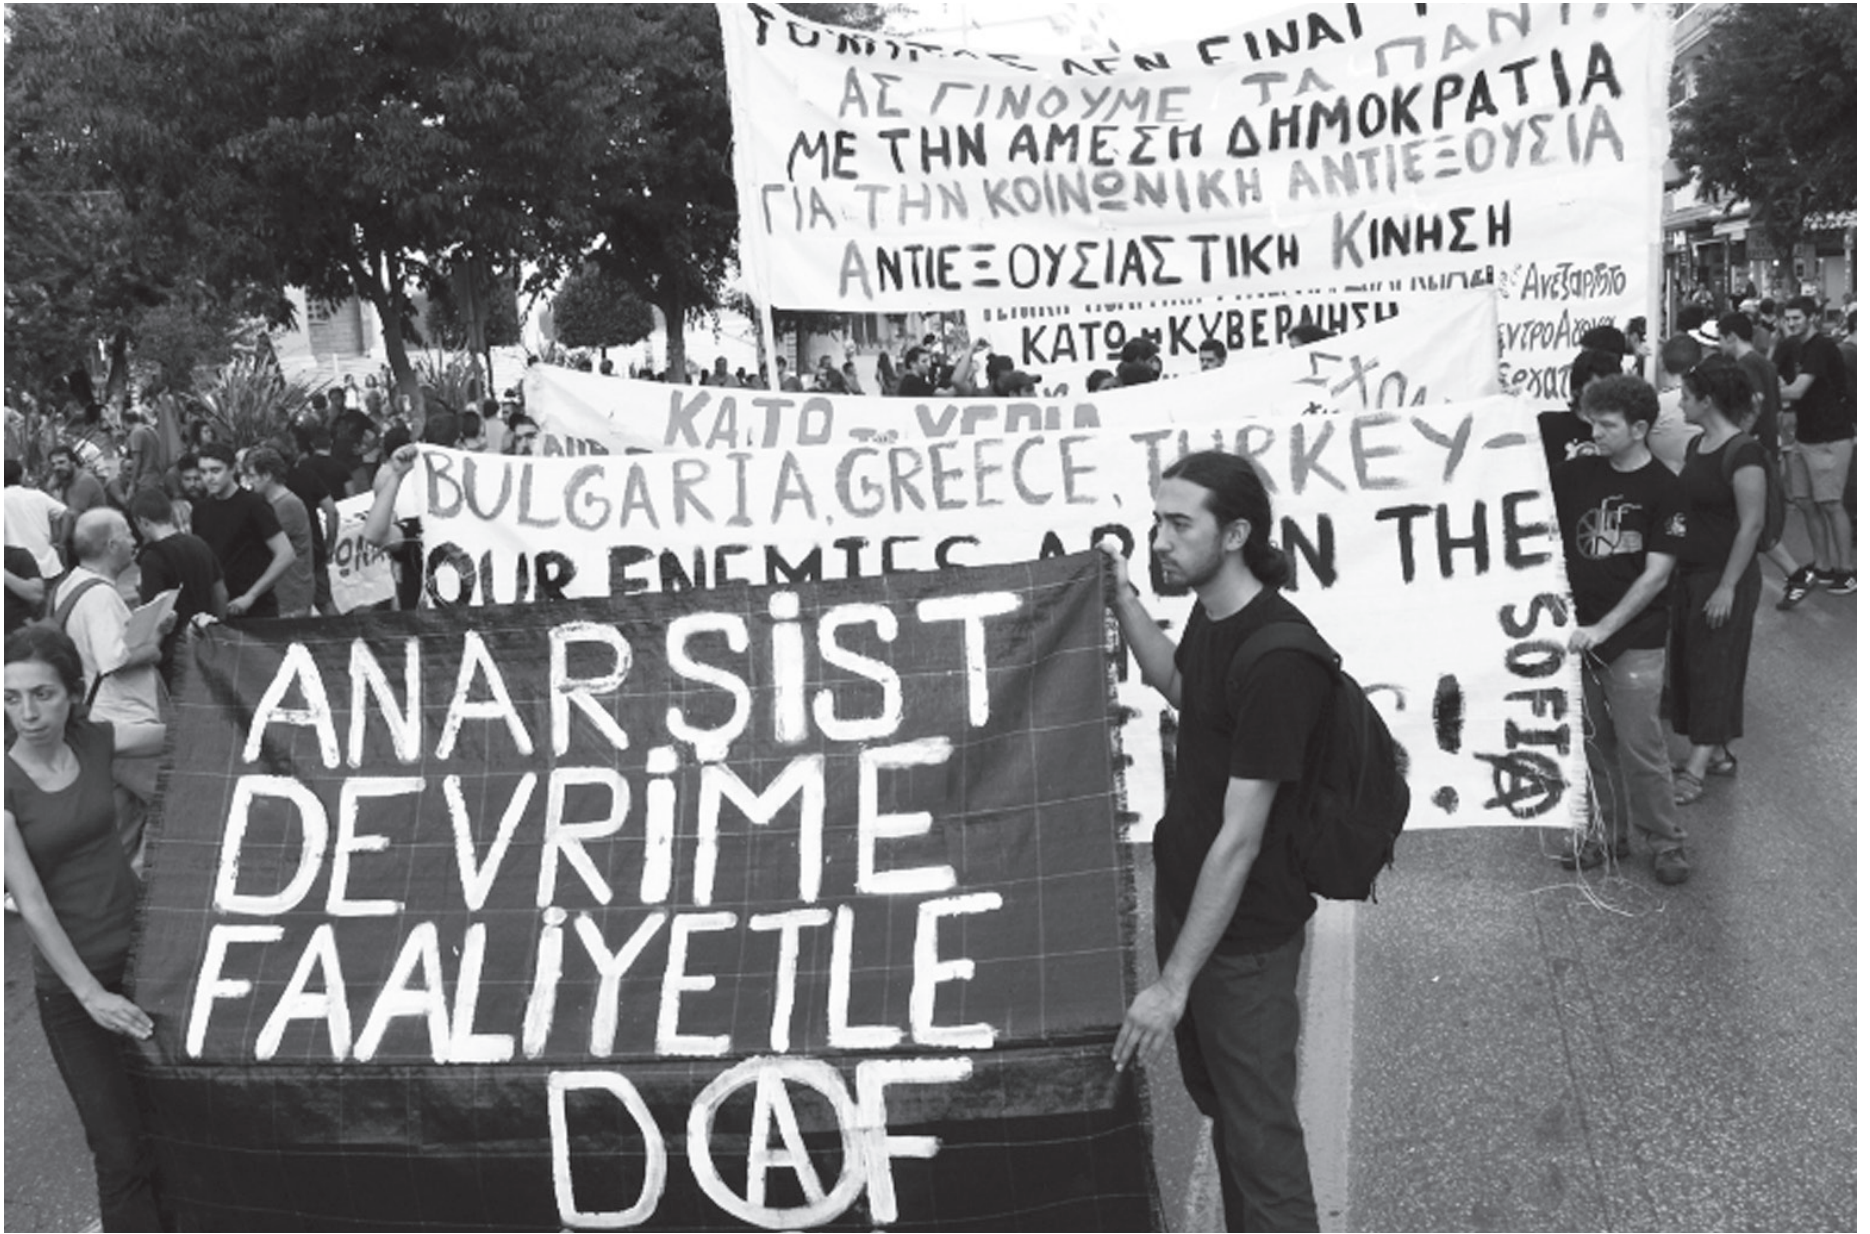 ΔΕΝ ΕΙΝΑΙ
ΑΣ ΓΙΝΟΥΜΕ ΤΑ ΠΑΝΤΑ
ΜΕ ΤΗΝ ΑΜΕΣΗ ΔΗΜΟΚΡΑΤΙΑ
ΓΙΑ ΤΗΝ ΚΟΙΝΩΝΙΚΗ ΑΝΤΙΕΞΟΥΣΙΑ
ΑΝΤΙΕΞΟΥΣΙΑΣΤΙΚΗ ΚΙΝΗΣΗ
ΚΑΤΩ η ΚΥΒΕΡΝΗΣΗ
ΚΑΤΩ
BULGARIA, GREECE, TURKEY-
OUR ENEMIES ARE IN THE
!
SOFIA
ANARŞİST
DEVRİME
FAALİYETLE
DAF